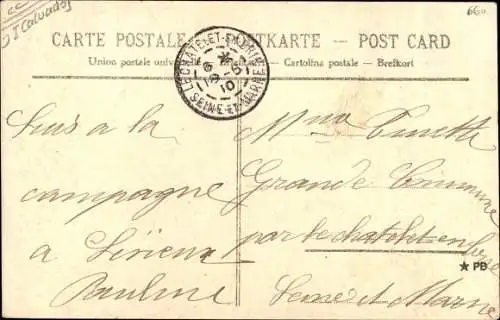 CC
(Calvados)
660
CARTE POSTALE — POSTKARTE — POST CARD
Union postale universelle — Cartolina postale — Brefkort
LE CHATELET-EN-BRIE
SEINE-ET-MARNE
10
Suis a la
campagne
a Lisieux
Pauline
Mme
Grande Commune
par le chatelet en
Seine et Marne
★ PB